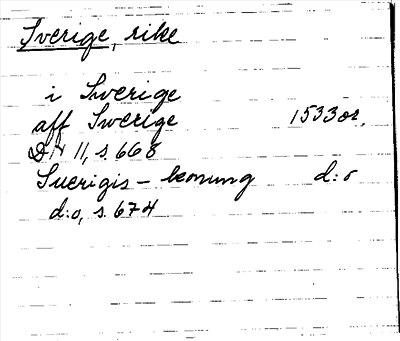 Sverige, rike
i Swerige
aff Swerige 1533 or.
DN 11, s. 668
Suerigis - konung d:o
d:o, s. 674